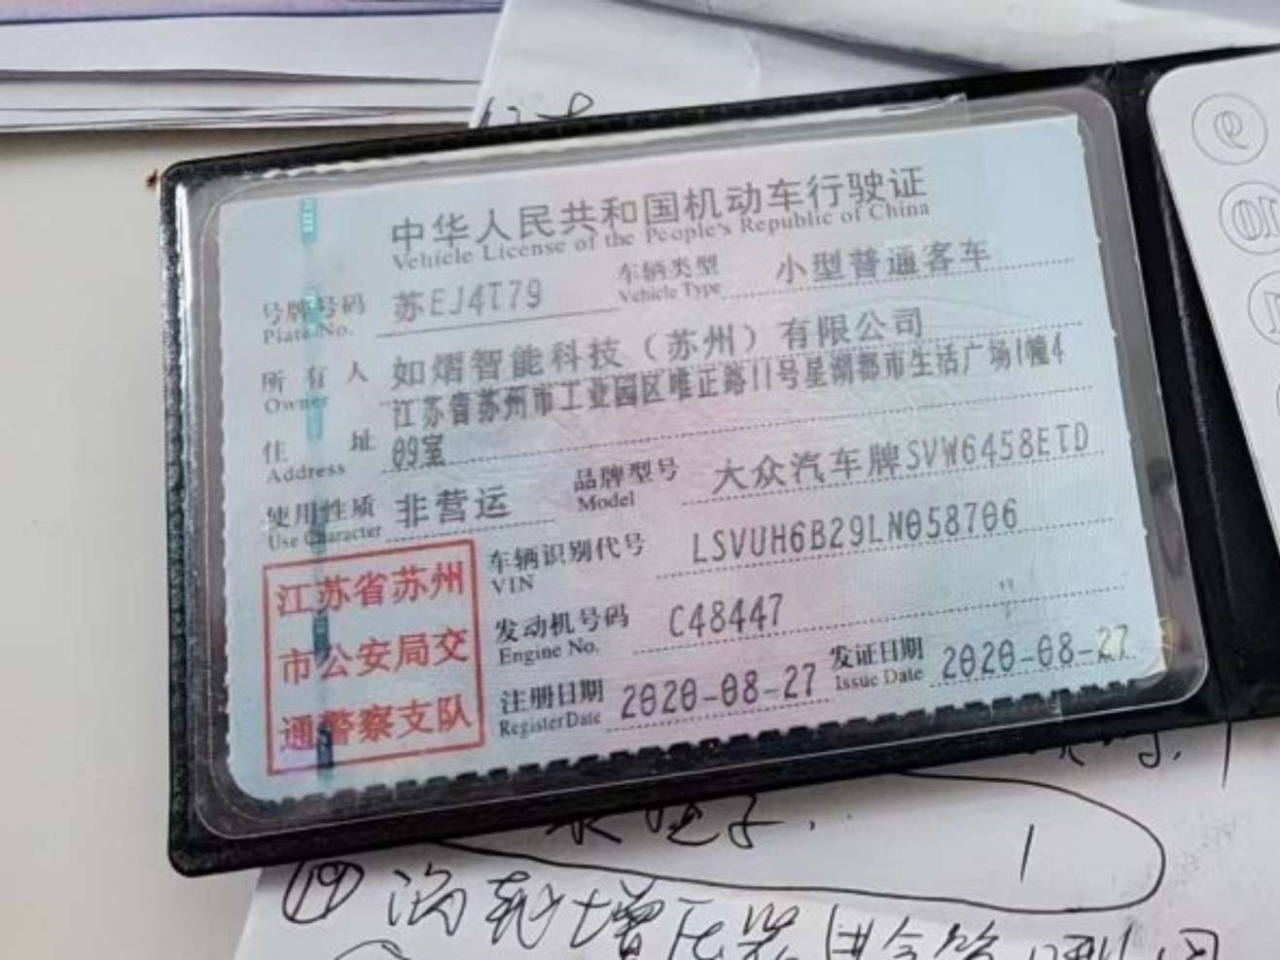 中华人民共和国机动车行驶证
Vehicle License of the People's Republic of China
号牌号码 苏EJ4T79 车辆类型 小型普通客车
Plate No. Vehicle Type
所有人 如熠智能科技（苏州）有限公司
Owner
江苏省苏州市工业园区唯正路11号星湖都市生活广场1幢4
住址 09室
Address
使用性质 非营运 品牌型号 大众汽车牌SVW6458ETD
Use Character Model
车辆识别代号 LSVUH6B29LN058706
VIN
发动机号码 C48447
Engine No.
注册日期 2020-08-27 发证日期 2020-08-27
Register Date Issue Date
江苏省苏州
市公安局交
通警察支队
9
10
⑲ 涡轮增压器